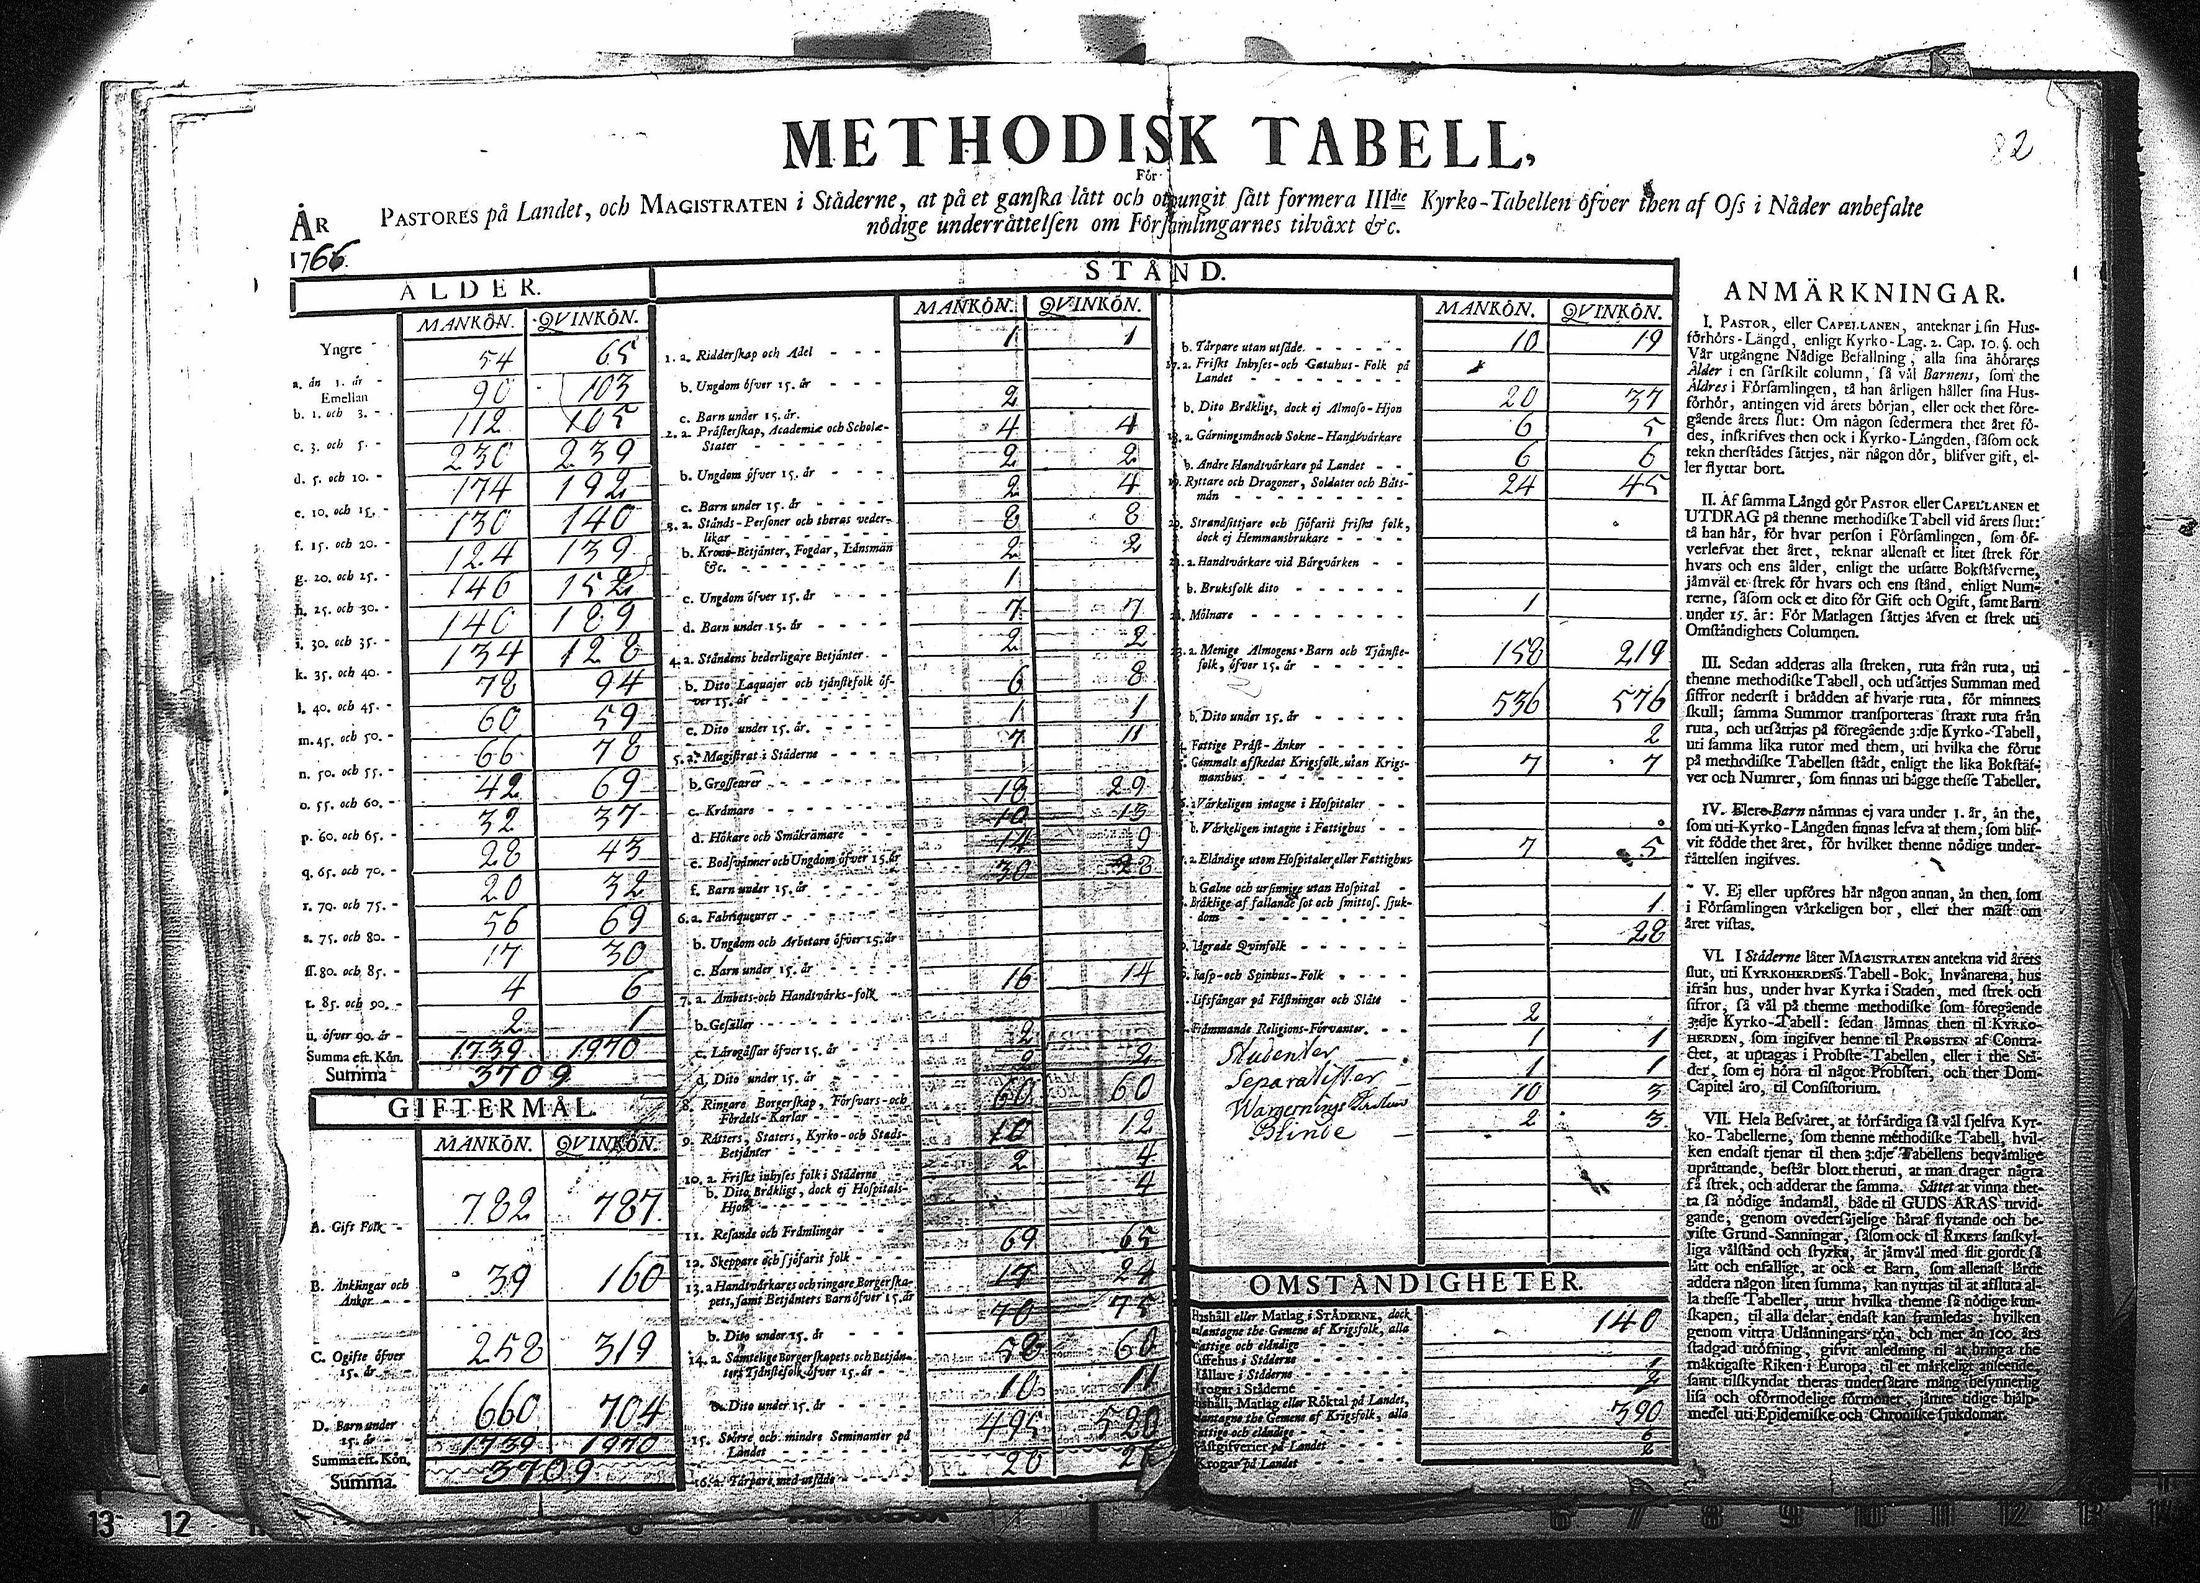 82
METHODISK TABELL,
För
PASTORES på Landet, och MAGISTRATEN i Städerne, at på et ganska lätt och otvungit sätt formera IIIdie Kyrko-Tabellen öfver then af Oss i Nåder anbefalte
nödige underrättelsen om Församlingarnes tilväxt &c.
ÅR
1766.
ÅLDER.
MANKÖN. QVINKÖN.
Yngre
a. än 1. år - 54 65
Emellan
b. 1. och 3. - 90 103
c. 3. och 5. - 112 105
d. 5. och 10. - 230 239
e. 10. och 15. - 174 192
f. 15. och 20. - 130 140
g. 20. och 25. - 124 139
h. 25. och 30. - 146 152
i. 30. och 35. - 140 189
k. 35. och 40. - 134 128
l. 40. och 45. - 78 94
m. 45. och 50. - 60 59
n. 50. och 55. - 66 78
o. 55. och 60. - 42 69
p. 60. och 65. - 32 37
q. 65. och 70. - 28 43
r. 70. och 75. - 20 32
s. 75. och 80. - 56 69
ss. 80. och 85. - 17 30
t. 85. och 90. - 4 6
u. öfver 90. år - 2 1
Summa eft. Kön. 1739 1970
Summa 3709
GIFTERMÅL.
MANKÖN. QVINKÖN.
A. Gift Folk - 782 787
B. Änklingar och
Änkor - - - 39 160
C. Ogifte öfver
15. år - - 258 319
D. Barn under
15. år - - 660 704
Summa eft. Kön. 1739 1970
Summa. 3709
STÅND.
MANKÖN. QVINKÖN.
1. a. Ridderskap och Adel - - - 1 1
b. Ungdom öfver 15. år - - -
c. Barn under 15. år. 2
2. a. Prästerskap, Academiæ och Scholæ-
Stater - - - 4 4
b. Ungdom öfver 15. år - - - 2 2
c. Barn under 15. år - - - 2 4
3. a. Stånds-Personer och theras veder-
likar - - - 8 8
b. Krono-Betjänter, Fogdar, Länsmän
&c. - - - 2 2
c. Ungdom öfver 15. år - - - 1
d. Barn under 15. år - - - 7 7
4. a. Ståndens hederligare Betjänter - 2 2
b. Dito Laquajer och tjänstefolk öf-
ver 15. år - - - 6 8
c. Dito under 15. år. - - - 1 1
5. a. Magistrat i Städerne - - - 7 11
b. Grosserer - - -
c. Krämare - - - 18 29
d. Hökare och Småkrämare - - - 10 13
e. Bodsvänner och Ungdom öfver 15. år 14 9
f. Barn under 15. år - - - 30 28
6. a. Fabriqueurer - - -
b. Ungdom och Arbetare öfver 15. år
c. Barn under 15. år - - -
7. a. Ämbets- och Handtvärks-folk - - 16 14
b. Gesäller - - -
c. Lärogåssar öfver 15. år - - 2
d. Dito under 15. år - - - 2 2
8. Ringare Borgerskap, Försvars- och
Fördels-Karlar - - - 60 60
9. Rätters, Staters, Kyrko- och Stads-
Betjänter - - - 10 12
10. a. Friskt inhyses folk i Städerne 2 4
b. Dito Bräkligt, dock ej Hospitals-
Hjon - - - 4
11. Resande och Främlingar - - -
12. Skeppare och sjöfarit folk - - - 69 65
13. a. Handtvärkares och ringare Borgerska-
pets, samt Betjänters Barn öfver 15. år 17 24
b. Dito under 15. år - - - 70 75
14. a. Samtelige Borgerskapets och Betjän-
ters Tjänstefolk öfver 15. år - - 58 60
b. Dito under 15. år - - - 10 11
15. Större och mindre Seminanter på
Landet - - - 495 520
16. a. Tårpare med utsäde - 20
MANKÖN. QVINKÖN.
b. Tårpare utan utsäde - - - 10 19
17. a. Friskt Inhyses- och Gatuhus-Folk på
Landet - - -
b. Dito Bräkligt, dock ej Almoso-Hjon 20 37
18. a. Gärningsmän och Sokne-Handtvärkare 6 5
b. Andre Handtvärkare på Landet - - 6 6
19. Ryttare och Dragoner, Soldater och Båts-
män - - - 24 45
20. Strandsittjare och sjöfarit friskt folk,
dock ej Hemmansbrukare - - -
21. a. Handtvärkare vid Bärgvärken - -
b. Bruksfolk dito - - -
22. Mölnare - - - 1
23. a. Menige Almogens Barn och Tjänste-
folk, öfver 15. år - - - 158 219
b. Dito under 15. år - - - 536 576
Fattige Präst-Änkor - - - 2
Gammalt afskedat Krigsfolk utan Krigs-
manshus - - - 7 7
a. Värkeligen intagne i Hospitaler - -
b. Värkeligen intagne i Fattighus - -
a. Eländige utom Hospitaler eller Fattighus 7 5
b. Galne och ursinnige utan Hospital -
Bräklige af fallande sot och smittos. sjuk-
dom - - - 1
Lägrade Qvinfolk - - - 28
Rasp- och Spinhus-Folk - - -
Lifsfångar på Fästningar och Slått -
Främmande Religions-Förvanter. - - 2
Studenter - 1 1
Separatister - 1 1
10 3
Blinde - 2 3
OMSTÄNDIGHETER.
Hushåll eller Matlag i STÄDERNE, dock
undantagne the Gemene af Krigsfolk, alla
fattige och eländige - - - 140
Caffehus i Städerne
Källare i Städerne - - - 1
Krogar i Städerne - - - 2
Hushåll, Matlag eller Röktal på Landet,
undantagne the Gemene af Krigsfolk, alla
fattige och eländige - - - 390
Gästgifverier på Landet - - - 6
Krogar på Landet - - - 2
ANMÄRKNINGAR.
I. PASTOR, eller CAPELLANEN, anteknar i sin Hus-
förhörs-Längd, enligt Kyrko-Lag. 2. Cap. 10. §. och
Vår utgångne Nådige Befallning, alla sina åhörares
Ålder i en särskilt column, så väl Barnens, som the
Äldres i Församlingen, tå han årligen håller sina Hus-
förhör, antingen vid årets början, eller ock thet före-
gående årets slut: Om någon sedermera thet året fö-
des, inskrifves then ock i Kyrko-Längden, såsom ock
tekn therstädes sättjes, när någon dör, blifver gift, el-
ler flyttar bort.
II. Af samma Längd gör PASTOR eller CAPELLANEN et
UTDRAG på thenne methodiske Tabell vid årets slut:
tå han här, för hvar person i Församlingen, som öf-
verlefvat thet året, teknar allenast et litet strek för
hvars och ens ålder, enligt the utsatte Bokstäfverne,
jämväl et strek för hvars och ens stånd, enligt Num-
rerne, såsom ock et dito för Gift och Ogift, samt Barn
under 15. år: För Matlagen sättjes äfven et strek uti
Omständighets Columnen.
III. Sedan adderas alla streken, ruta från ruta, uti
thenne methodiske Tabell, och utsättjes Summan med
siffror nederst i brädden af hvarje ruta, för minnets
skull; samma Summor transporteras straxt ruta från
ruta, och utsättjas på föregående 3:dje Kyrko-Tabell,
uti samma lika rutor med them, uti hvilka the förut
på methodiske Tabellen stådt, enligt the lika Bokstäf-
ver och Numrer, som finnas uti bägge thesse Tabeller.
IV. Flere Barn nämnas ej vara under 1. år, än the,
som uti Kyrko-Längden finnas lefva af them, som blif-
vit födde thet året, för hvilket thenne nödige under-
rättelsen ingifves.
V. Ej eller upföres här någon annan, än then, som
i Församlingen värkeligen bor, eller ther mäst om
året vistas.
VI. I Städerne låter MAGISTRATEN antekna vid årets
slut, uti KYRKOHERDENS Tabell-Bok, Invånarena, hus
ifrån hus, under hvar Kyrka i Staden, med strek och
siffror, så väl på thenne methodiske som föregående
3:dje Kyrko-Tabell: sedan lämnas then til KYRKO-
HERDEN, som ingifver henne til PROBSTEN af Contra-
ctet, at uptagas i Probste-Tabellen, eller i the Stä-
der, som ej höra til något Probsteri, och ther Dom-
Capitel äro, til Consistorium.
VII. Hela Besväret, at förfärdiga så väl sjelfva Kyr-
ko-Tabellerne, som thenne methodiske Tabell, hvil-
ken endast tjenar til then 3:dje Tabellens beqvämlige
uprättande, består blott theruti, at man drager några
få strek, och adderar the samma. Sättet at vinna thet-
ta så nödige ändamål, både til GUDS ÄRAS utvid-
gande, genom ovedersäjelige häraf flytande och be-
viste Grund-Sanningar, såsom ock til RIKETS sanskyl-
liga välstånd och styrka, är jämväl med flit gjordt så
lätt och enfalligt, at ock et Barn, som allenast lärdt
addera någon liten summa, kan nyttjas til at afsluta al-
la thesse Tabeller, utur hvilka thenne så nödige kun-
skapen, til alla delar, endast kan framledas: hvilken
genom vittra Utlänningars rön, och mer än 100. års
stadgad utöfning, gifvit anledning til at bringa the
mäktigaste Riken i Europa, til et märkeligt anseende,
samt tilskyndat theras undersåtare mång besynnerlig
lisa och oförmodelige förmoner, jämte tidige hjälp-
medel uti Epidemiske och Chroniske sjukdomar.
13 12 6 7 8 9 10 11 12 13